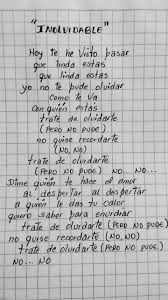 "INOLVIDABLE"
Hoy te he Visto pasar
que linda estas
que linda estas
yo no te pude olvidar
Como te va
Con quién estás
trate de olvidarte
(PERO NO PUDE)
no quise recordarte
(NO, NO)
trate de olvidarte
(PERO NO PUDE) NO... NO...
Dime quién te hace el amor
al despertar al despertar
a quién le das tu calor
quiero saber para envidiar
trate de olvidarte (PERO NO PUDE)
no quise recordarte (NO, NO)
trate de olvidarte (PERO NO PUDE)
NO... NO